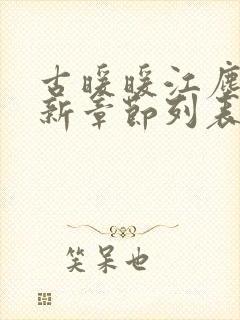 古暖暖江尘
新章节列表
笑呆也